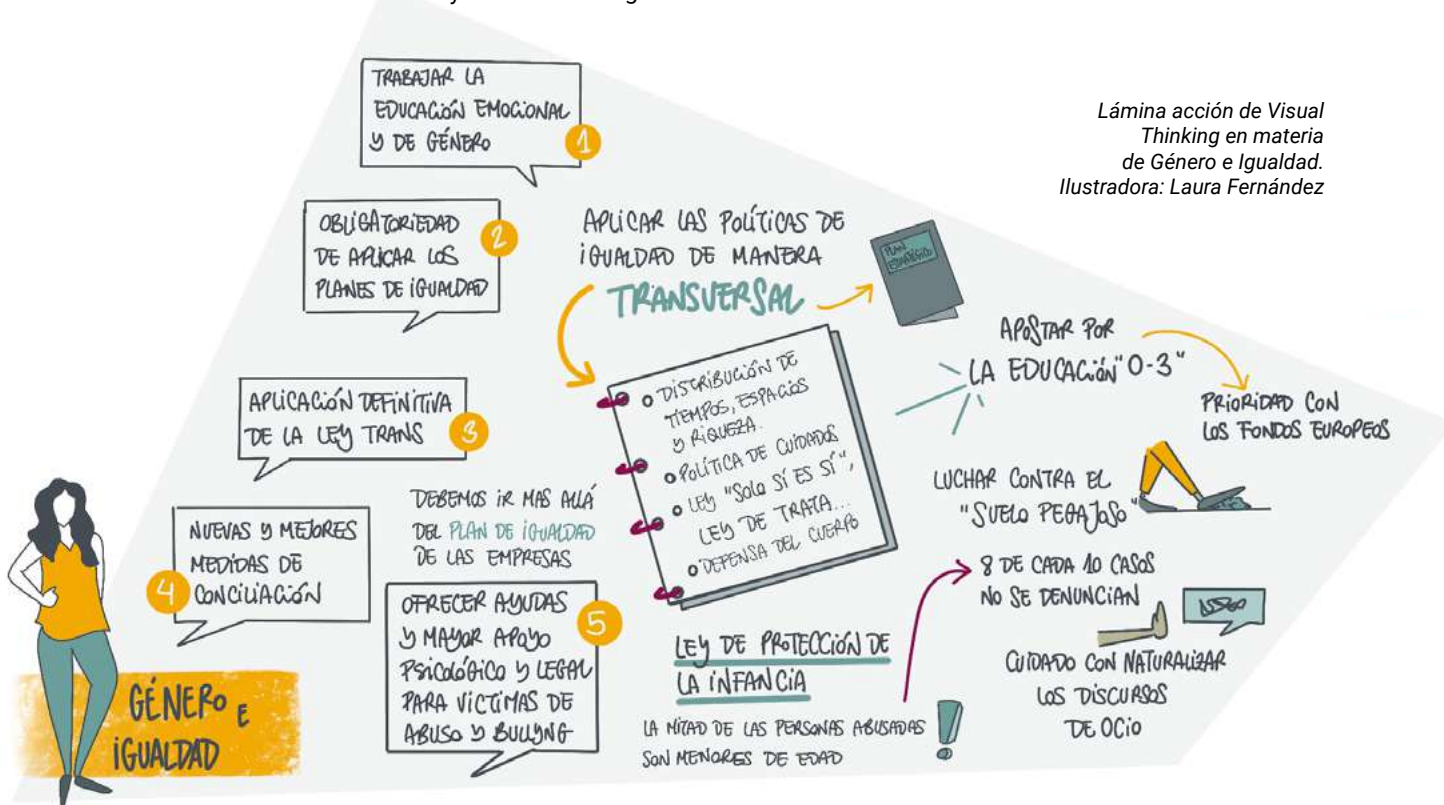 Lámina acción de Visual
Thinking en materia
de Género e Igualdad.
Ilustradora: Laura Fernández
TRABAJAR LA
EDUCACIÓN EMOCIONAL
Y DE GÉNERO
1
OBLIGATORIEDAD
DE APLICAR LOS
PLANES DE IGUALDAD
2
APLICACIÓN DEFINITIVA
DE LA LEY TRANS
3
NUEVAS Y MEJORES
MEDIDAS DE
CONCILIACIÓN
4
OFRECER AYUDAS
Y MAYOR APOYO
PSICOLÓGICO Y LEGAL
PARA VICTIMAS DE
ABUSO Y BULLYNG
5
GÉNERO E
IGUALDAD
DEBEMOS IR MAS ALLÁ
DEL PLAN DE IGUALDAD
DE LAS EMPRESAS
APLICAR LAS POLÍTICAS DE
IGUALDAD DE MANERA
TRANSVERSAL
PLAN
ESTRATÉGICO
DISTRIBUCIÓN DE
TIEMPOS, ESPACIOS
Y RIQUEZA.
POLÍTICA DE CUIDADOS
LEY "SOLO SÍ ES SÍ",
LEY DE TRATA...
DEFENSA DEL CUERPO
LEY DE PROTECCIÓN DE
LA INFANCIA
LA MITAD DE LAS PERSONAS ABUSADAS
SON MENORES DE EDAD
!
APOSTAR POR
LA EDUCACIÓN "0-3"
PRIORIDAD CON
LOS FONDOS EUROPEOS
LUCHAR CONTRA EL
"SUELO PEGAJOSO"
8 DE CADA 10 CASOS
NO SE DENUNCIAN
CUIDADO CON NATURALIZAR
LOS DISCURSOS
DE OCIO